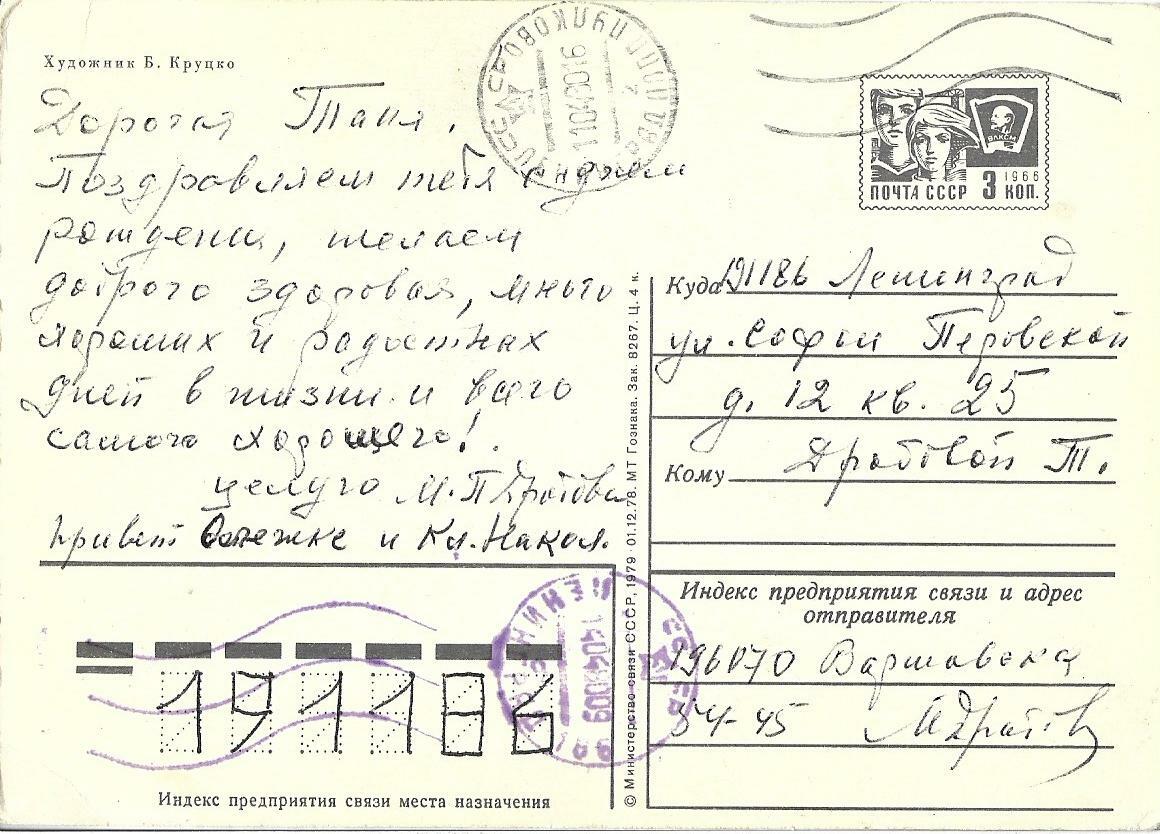 Художник Б. Круцко
Дорогая Таня.
Поздравляем тебя с днем
рождения, желаем
доброго здоровья, много
хороших и радостных
дней в жизни и всего
самого хорошего!
целую М.П. Дротова
привет Олежке и Кл. Никол.
ПУЛКОВО
110480016
ВЛКСМ
1966
ПОЧТА СССР 3 КОП.
Куда 191186 Ленинград
ул. Софьи Перовской
д. 12 кв. 25
Кому Дротовой Т.
Индекс предприятия связи и адрес
отправителя
196070 Варшавская
54-45 МДротов
© Министерство связи СССР, 1979 · 01.12.78. МТ Гознака. Зак. 8267. Ц. 4 к.
ЛЕНИНГРАД
14048009
191186
Индекс предприятия связи места назначения